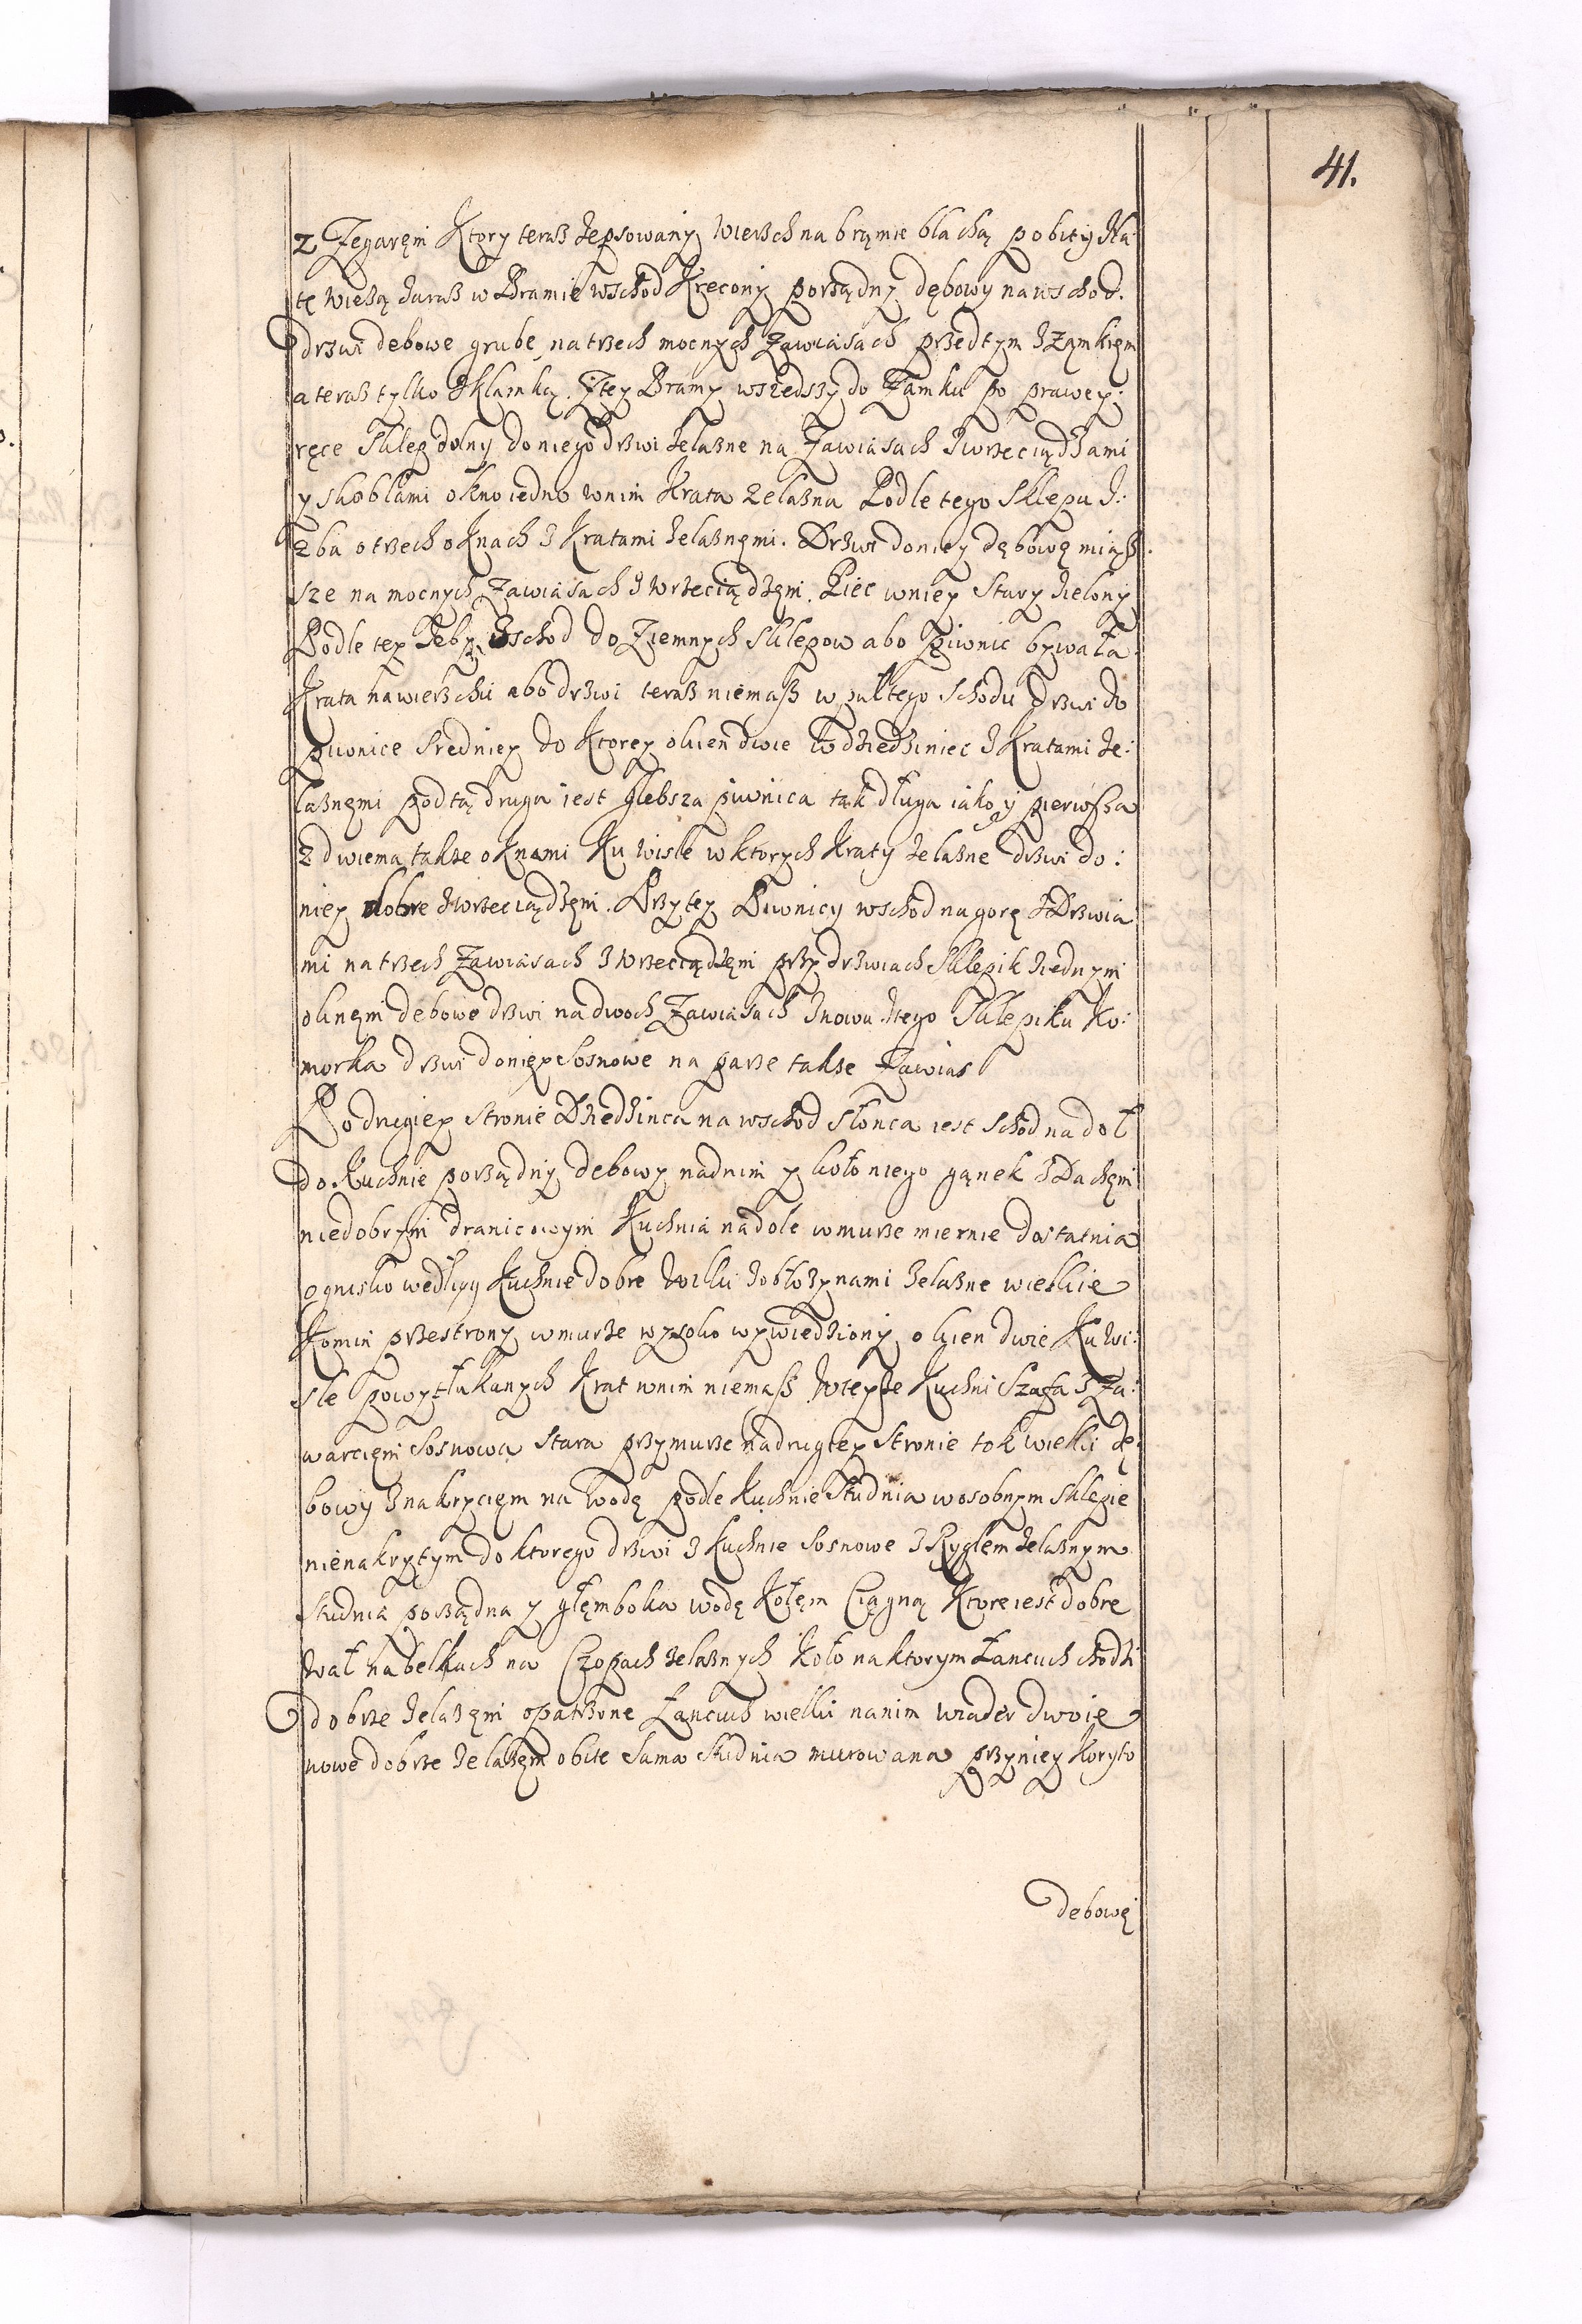 41.
z Zegaręm Ktory teraß zepsowany Wierzch na brąmie blachą pobity Na
tę wieżą zaraß w Bramie wschod Kręcony porządny dębowy na wschod.
drzwi debowe grube na trzech mocnych Zawiasach przedtym z zamkięm
a teraß tylko z Klamką. Z tey Bramy wszedszy do Zamku po prawey
ręce Sklep dolny do niego drzwi żelazne na Zawiasach z wrzeciądzami
y skoblami okno iedno w nim Krata żelazna Podle tego Sklepu J:
zba o trzech oKnach z Kratami żelaznęmi. Drzwi do niey dębowę miąß
sze na mocnych Zawiasach z wrzeciądzęm. Piec w niey Stary zielony
Podle tey Jzby Wschod do Ziemnych Sklepow abo piwnic bywała
Krata na wierzchu abo drzwi teraß niemaß w puł tego Schodu drzwi do
piwnice sredniey do Ktorey okien dwie w dziedziniec z Kratami że:
laznęmi pod tą druga iest głębsza piwnica tak długa iako y pierwsza
z dwiema także oKnami Ku wisle w ktorych Kraty żelazne drzwi do:
niey dobre z wrzeciądzęm. Przy tey Piwnicy wschod na gorę z Drzwia
mi na trzech Zawiasach z wrzeciądzęm przy drzwiach Sklepik z iednym
oknęm debowe drzwi na dwoch Zawiasach znowu z tego Sklepiku Ko:
morka drzwi do niey Sosnowe na parze także Zawias
Po drugiey stronie Dziedzinca na wschod słonca iest schod na doł
do Kuchnie porządny debowy nad nim y koło niego gąnek z Dachęm
niedobrym dranicowym Kuchnia na dole w murze miernie dostatnia
ognisko według Kuchnie dobre Wilki z obłożynami żelazne wielkie
Komin przestrony w murze wysoko wywiedziony okien dwie Ku wi:
sle powytłukanych Krat w nim niemaß W teyże Kuchni Szafa z Za:
warcięm Sosnowa stara przy murze na drugiey Stronie tok wielki dę:
bowy z nakryciem na wodę podle Kuchnie Studnia w osobnym sklepie
nienakrytym do ktorego drzwi z Kuchnie Sosnowe z Ryglem żelaznym
Studnia porządna y głęmboka wodę Kołęm Ciągną Ktore iest dobre
wał na belkach na Czopach żelaznych Koło na ktorym Łancuch chodzi
dobrze żelazęm opatrzone Łancuch wielki na nim wiader dwoie
nowe dobrze żelazęm obite sama studnia murowana przy niey Koryto
debowę